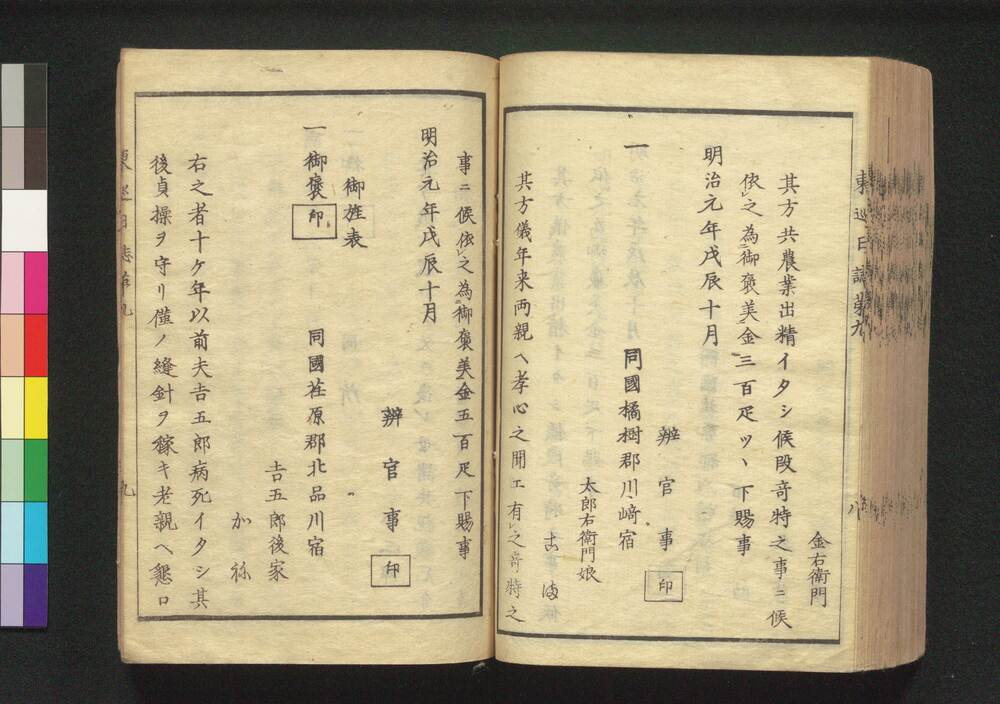 金右衛門
其方共農業出精イタシ候段奇特之事ニ候
依レ之為ニ御褒美ト金三百疋ツヽ下賜事
明治元年戊辰十月
辨官事 印
一 同國橘樹郡川﨑宿
太郎右衛門娘
其方儀年来両親ヘ孝心之聞エ有レ之奇特之
東巡日誌第九
八
事ニ候依レ之為御褒美金五百疋下賜事
明治元年戊辰十月
辨官事 印
御旌表
一御褒 印 同國荏原郡北品川宿
吉五郎後家
かね
右之者十ケ年以前夫吉五郎病死イタシ其
後貞操ヲ守リ僅ノ縫針ヲ稼キ老親ヘ懇ロ
東巡日誌第九
九